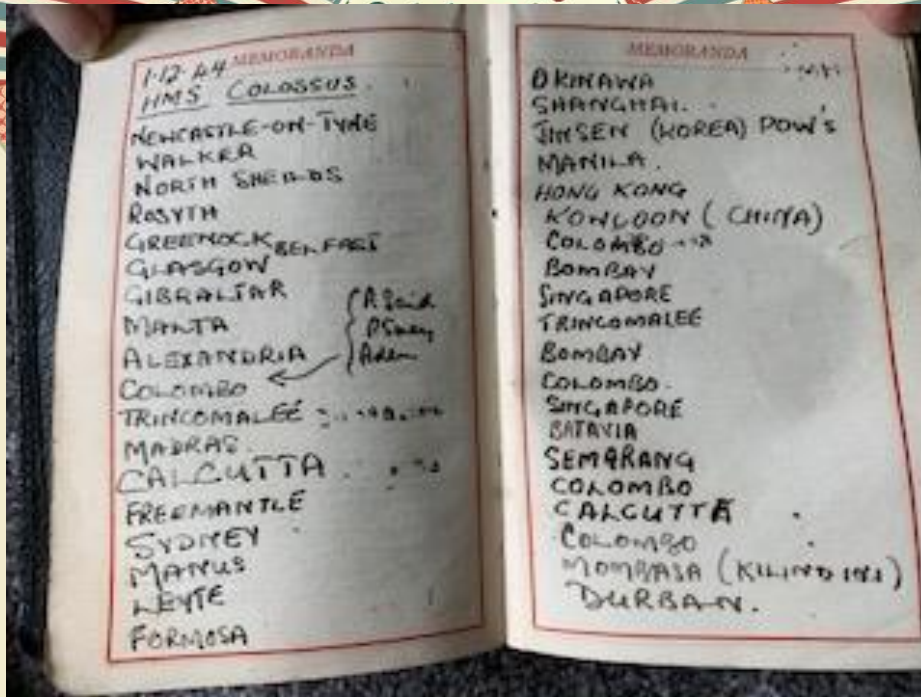 MEMORANDA
1-12-44
HMS COLOSSUS.
NEWCASTLE-ON-TYNE
WALKER
NORTH SHEILDS
ROSYTH
GREENOCK BELFAST
GLASGOW
GIBRALTAR
MALTA
ALEXANDRIA
P Said
Aden
COLOMBO
TRINCOMALEE
MADRAS.
CALCUTTA
FREEMANTLE
SYDNEY
MANUS
LEYTE
FORMOSA
MEMORANDA
OKINAWA
SHANGHAI.
JINSEN (KOREA) POW'S
MANILA.
HONG KONG
KOWLOON (CHINA)
COLOMBO
BOMBAY
SINGAPORE
TRINCOMALEE
BOMBAY
COLOMBO.
SINGAPORE
BATAVIA
SEMARANG
COLOMBO
CALCUTTA
COLOMBO
MOMBASA (KILINDINI)
DURBAN.